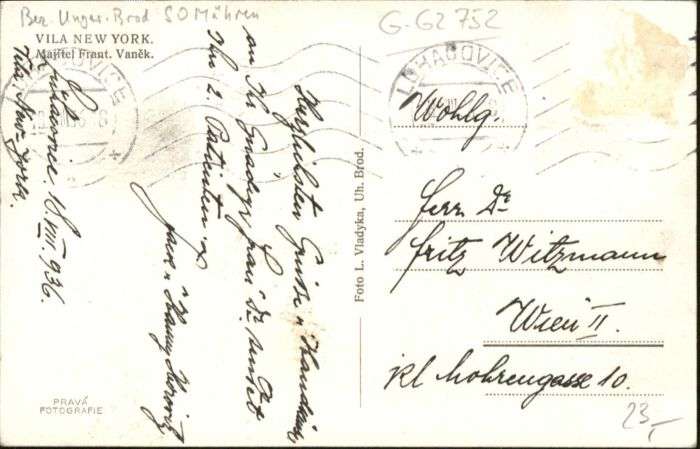 Bez. Ungar. Brod SO Mähren
G-G2 752
VILA NEW YORK.
Majitel Frant. Vaněk.
LUHAČOVICE
Luhačovice 18. VIII. 936.
Vila New York.
Herzlichsten Grüsse u. Handkuss
an Ihr Gnädige frau Dr.
Ihre 2. Patienten
u.
PRAVÁ
FOTOGRAFIE
Foto L. Vladyka, Uh. Brod.
LUHAČOVICE
Wohlg.
Herr Dr
Fritz Witzmann
Wien II.
Kl Mohrengasse 10.
23,-